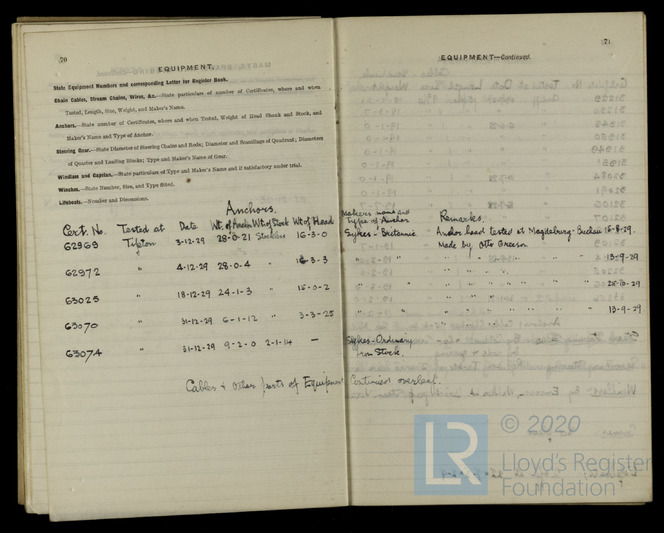 70
EQUIPMENT.
State Equipment Numbers and corresponding Letter for Register Book.
Chain Cables, Stream Chains, Wires, &c.—State particulars of number of Certificates, where and when
Tested, Length, Size, Weight, and Maker's Name.
Anchors.—State number of Certificates, where and when Tested, Weight of Head Shank and Stock, and
Maker's Name and Type of Anchor.
Steering Gear.—State Diameter of Steering Chains and Rods; Diameter and Scantlings of Quadrant; Diameters
of Quarter and Leading Blocks; Type and Maker's Name of Gear.
Windlass and Capstan.—State particulars of Type and Maker's Name and if satisfactory under trial.
Winches.—State Number, Size, and Type fitted.
Lifeboats.—Number and Dimensions.
Anchors.
Cert. No. Tested at Date Wt. of Anchor Wt. of Stock Wt of Head
62969 Tipton 3-12-29 28-0-21 Stockless 16-3-0
62972 " 4-12-29 28-0-4 " 16-3-3
63025 " 18-12-29 24-1-3 " 15-0-2
63070 " 31-12-29 6-1-12 " 3-3-25
63074 " 31-12-29 9-2-0 2-1-14 —
Cables & other parts of Equipment Continued overleaf.
71
EQUIPMENT—Continued.
Makers name and Type of Anchor Remarks.
Sykes-Britannic Anchor head tested at Magdeburg-Buckau 16-8-29.
Made by Otto Gruson
" " " " " " " 13-9-29
" " " " " " " 25-10-29
" " " " " " " 13-9-29
Sykes-Ordinary
Iron Stock.
© 2020
LR
Lloyd's Register
Foundation